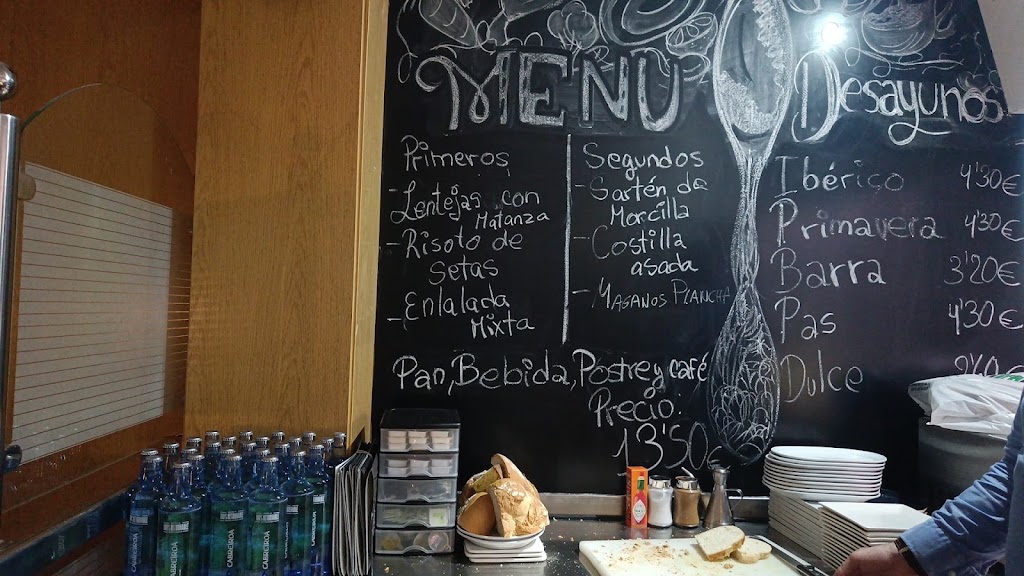 MENU
Primeros
- Lentejas con
Matanza
- Risoto de
Setas
- Enlalada
Mixta
Segundos
- Sartén de
Morcilla
- Costilla
asada
- Maganos Plancha
Pan, Bebida, Postre y café
Precio:
13'50
Desayunos
Ibérico 4'30€
Primavera 4'30€
Barra 3'20€
Pas 4'30€
Dulce
CABREIROÁ
CABREIROÁ
CABREIROÁ